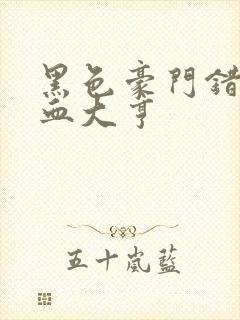 黑色豪門錯
血大亨
五十嵐藍